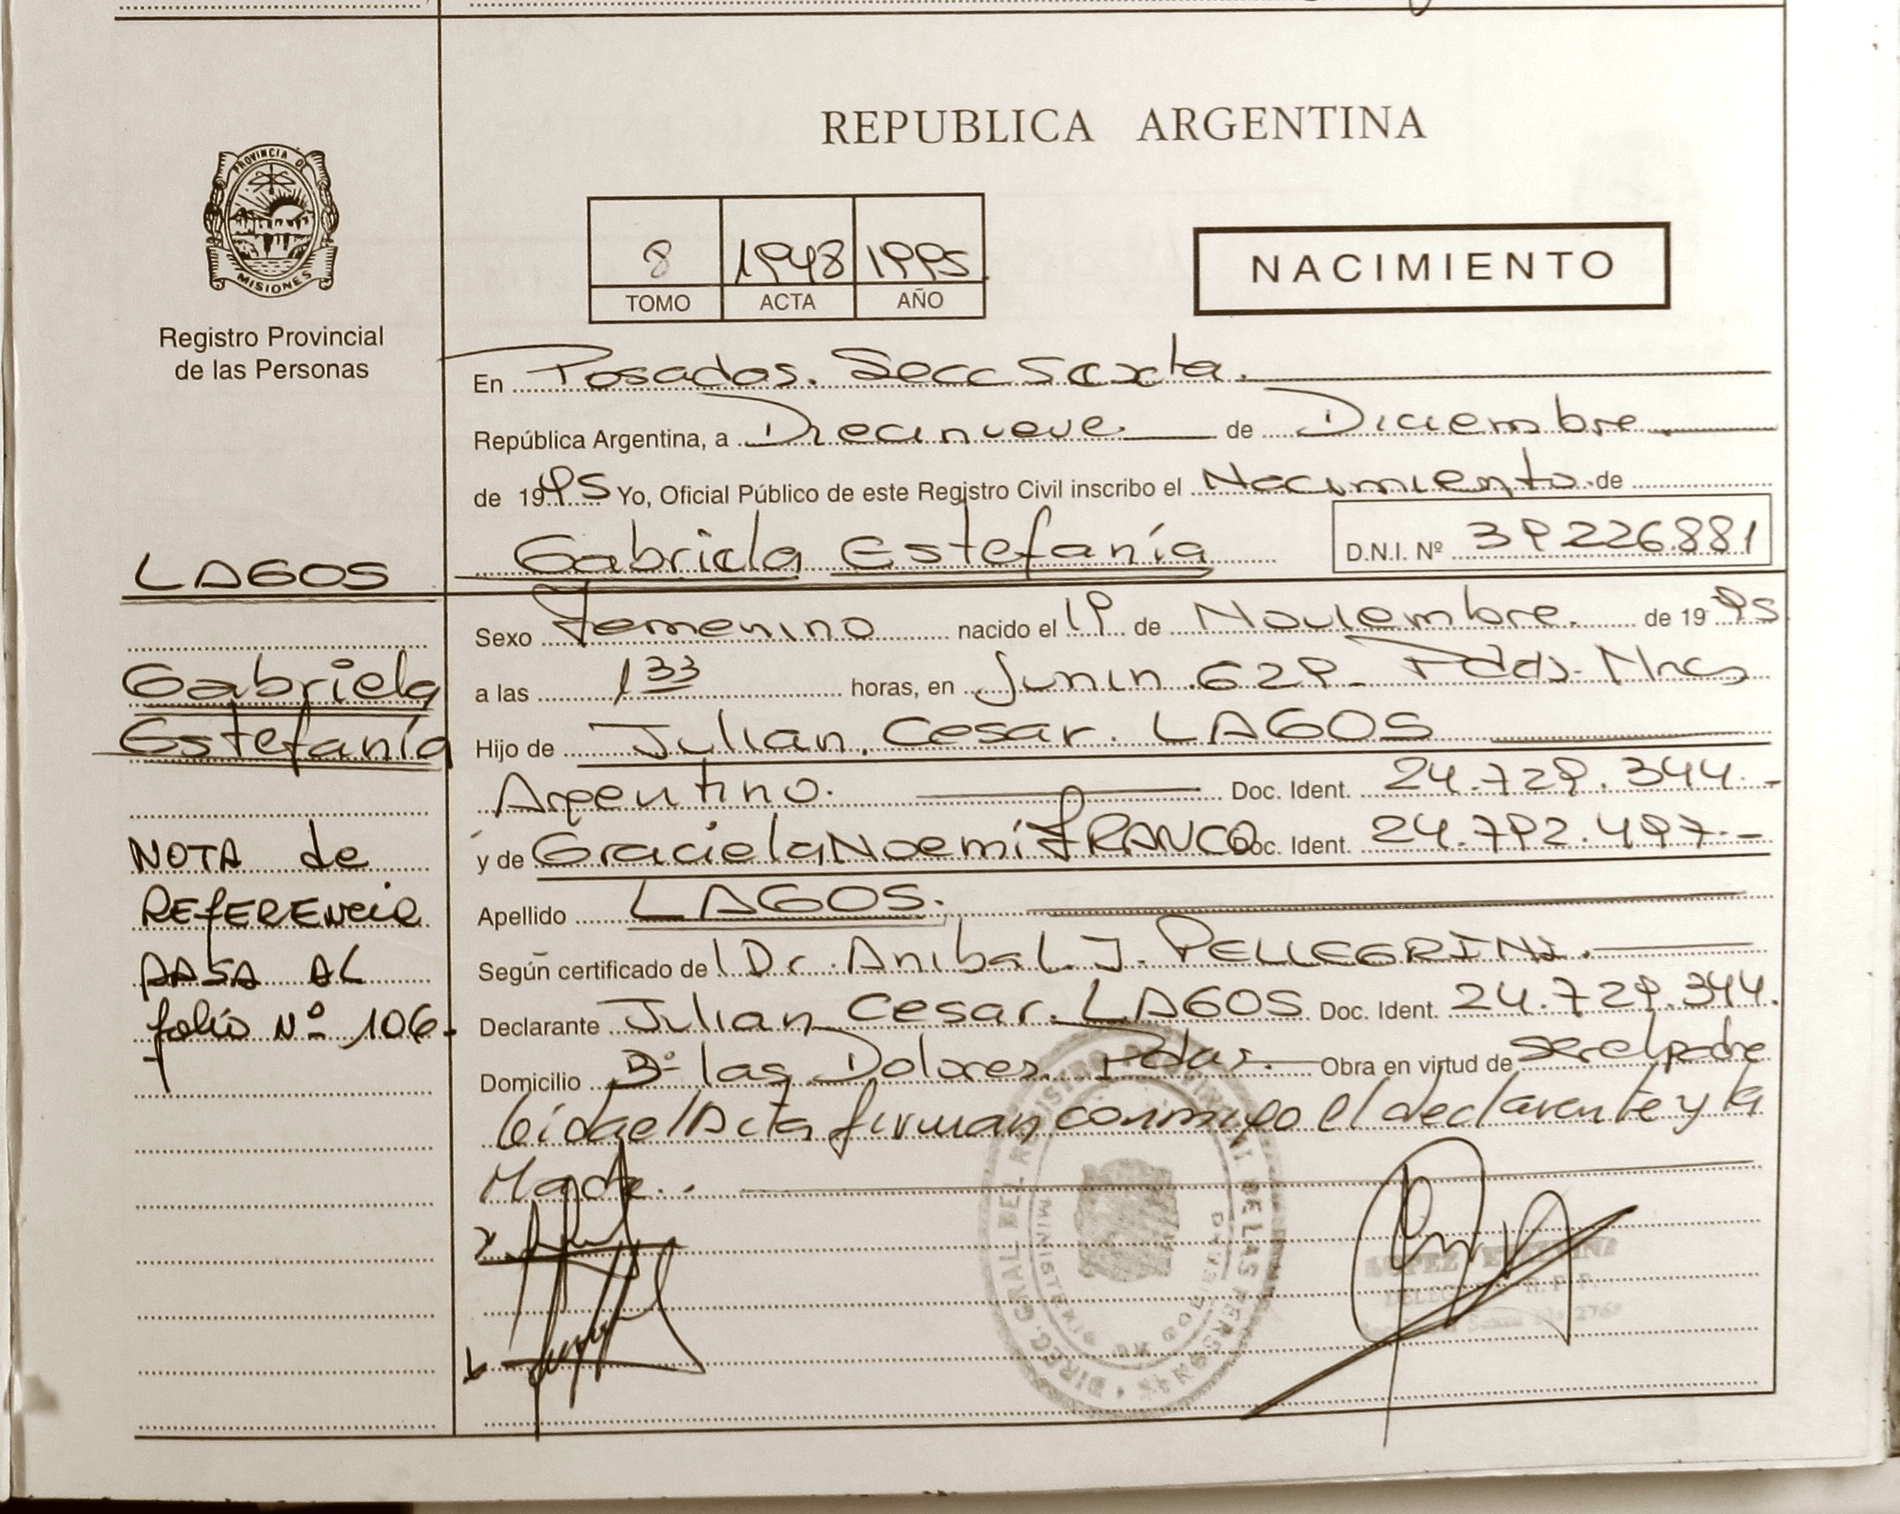 REPUBLICA ARGENTINA
PROVINCIA DE
MISIONES
Registro Provincial
de las Personas
8 1948 1995
TOMO ACTA AÑO
NACIMIENTO
En Posadas. Secc Sexta.
República Argentina, a Diecinueve de Diciembre
de 1995 Yo, Oficial Público de este Registro Civil inscribo el Nacimiento de
Gabriela Estefanía D.N.I. Nº 39226.881
LAGOS
Gabriela
Estefanía
NOTA de
REFERENCIA
PASA AL
folio Nº 106.
Sexo Femenino nacido el 19 de Noviembre. de 1995
a las 1 33 horas, en Junin 629 - Pdas. Mnes
Hijo de Julian. Cesar. LAGOS
Argentino. Doc. Ident. 24.729.344.-
y de Graciela Noemí FRANCO Doc. Ident. 24.792.497.-
Apellido LAGOS.
Según certificado del Dr. Anibal. J. PELLEGRINI.
Declarante Julian Cesar. LAGOS Doc. Ident. 24.729.344.
Domicilio Bº las Dolores. Pdas. Obra en virtud de ser el padre
leida el Acta firman conmigo el declarante y la
Madre..
DIREC. GRAL DEL REGISTRO PROVINCIAL DE LAS PERSONAS
MINISTERIO DE GOBIERNO